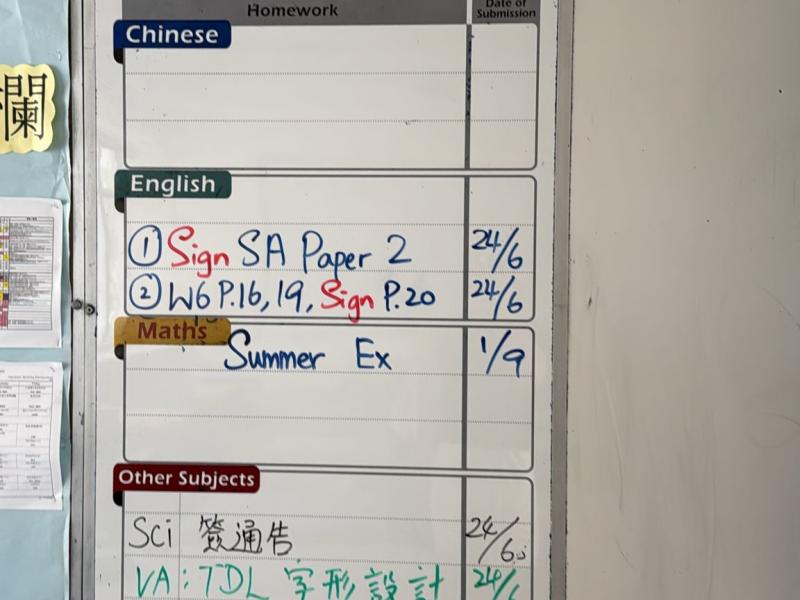 Homework
Date of Submission
Chinese
欄
English
① Sign SA Paper 2 24/6
② W6 P.16, 19, Sign P.20 24/6
Maths
Summer Ex 1/9
Other Subjects
Sci 簽通告 24/6
VA: TDL 字形設計 24/